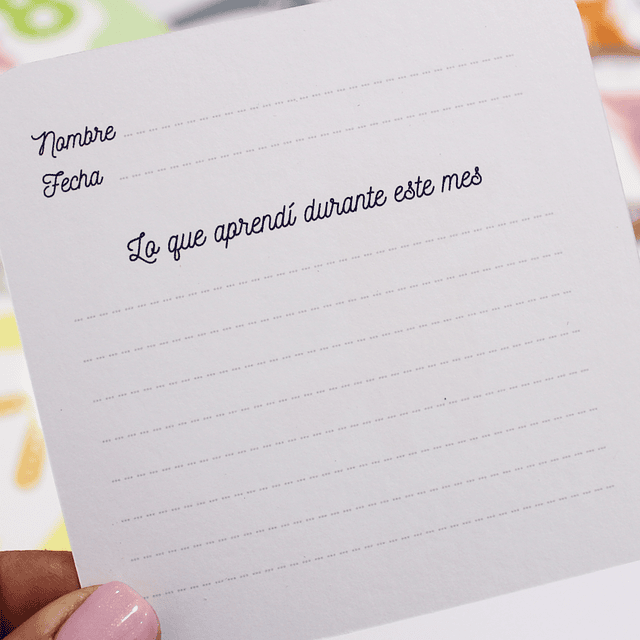 Nombre
Fecha
Lo que aprendí durante este mes